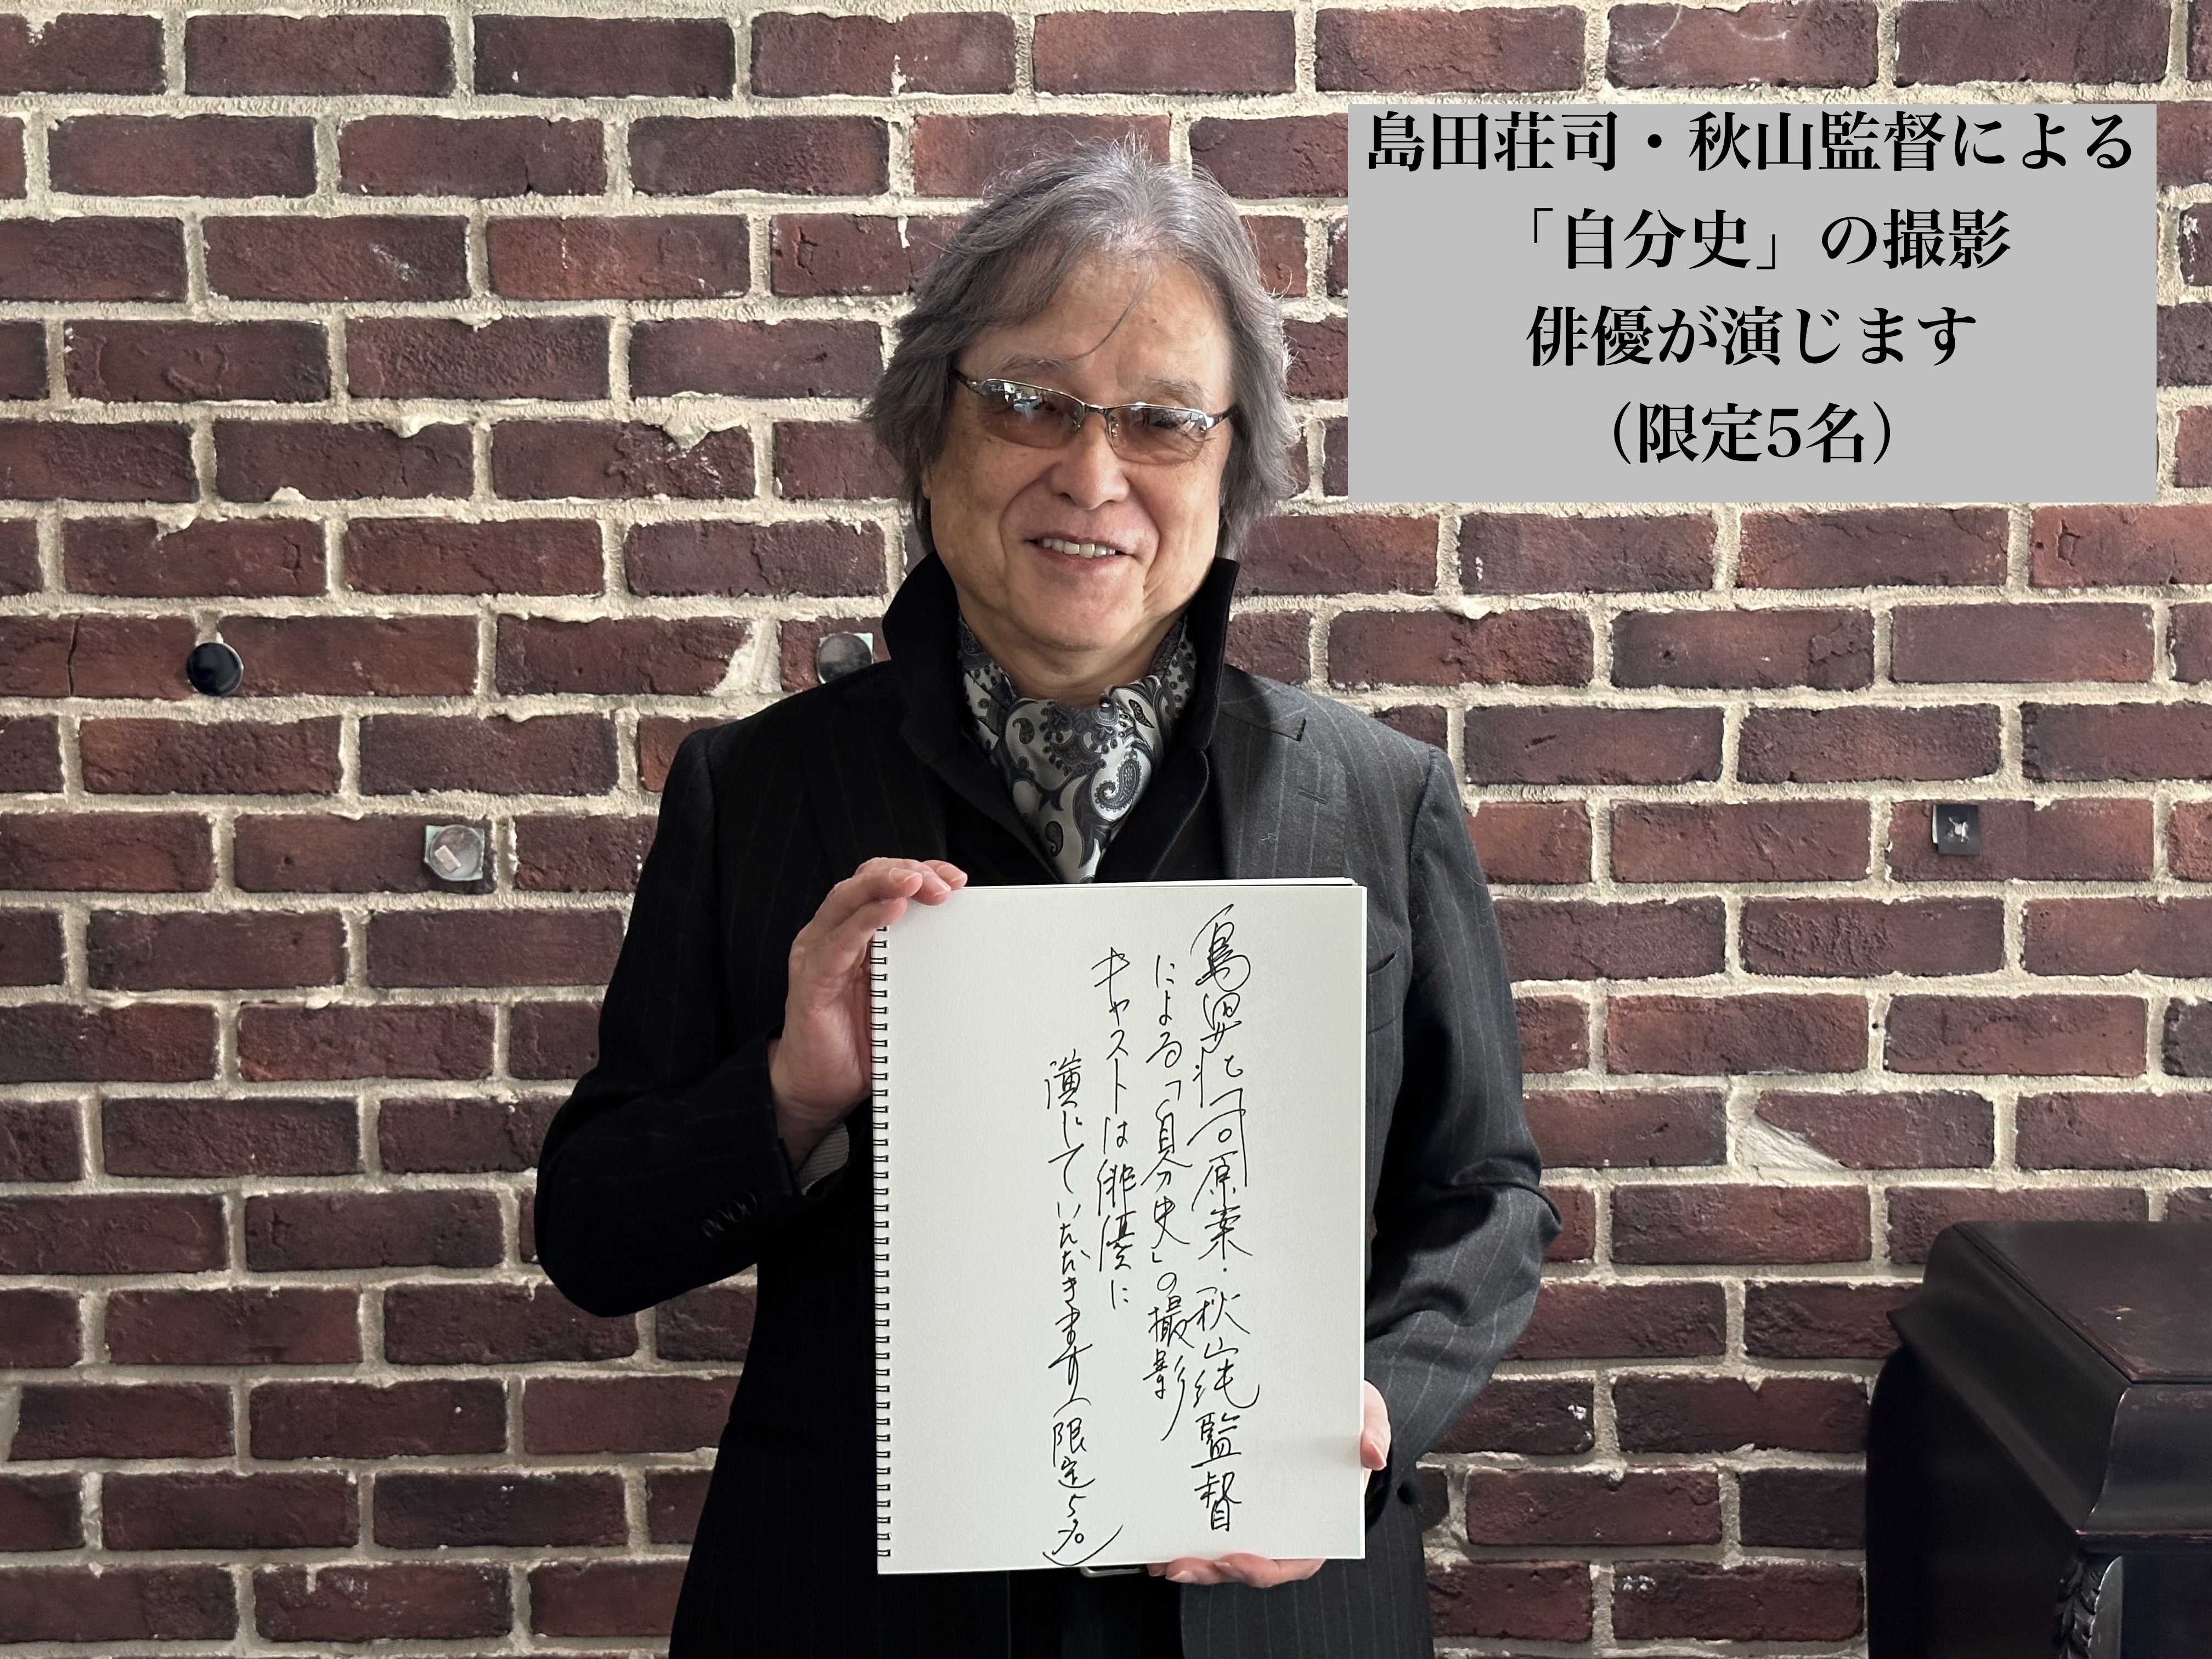 島田荘司・秋山監督による
「自分史」の撮影
俳優が演じます
（限定5名）
島田荘司原案・秋山純監督
による「自分史」の撮影
キャストは俳優に
演じていただきます（限定5名）